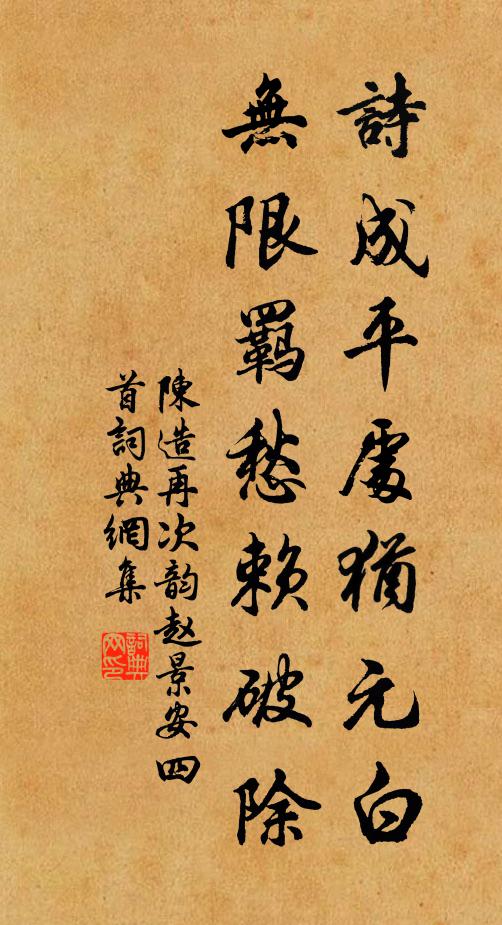 詩成平處猶元白
無限羈愁賴破除
陳造再次韵赵景安四
首詞典網集
詞典網印